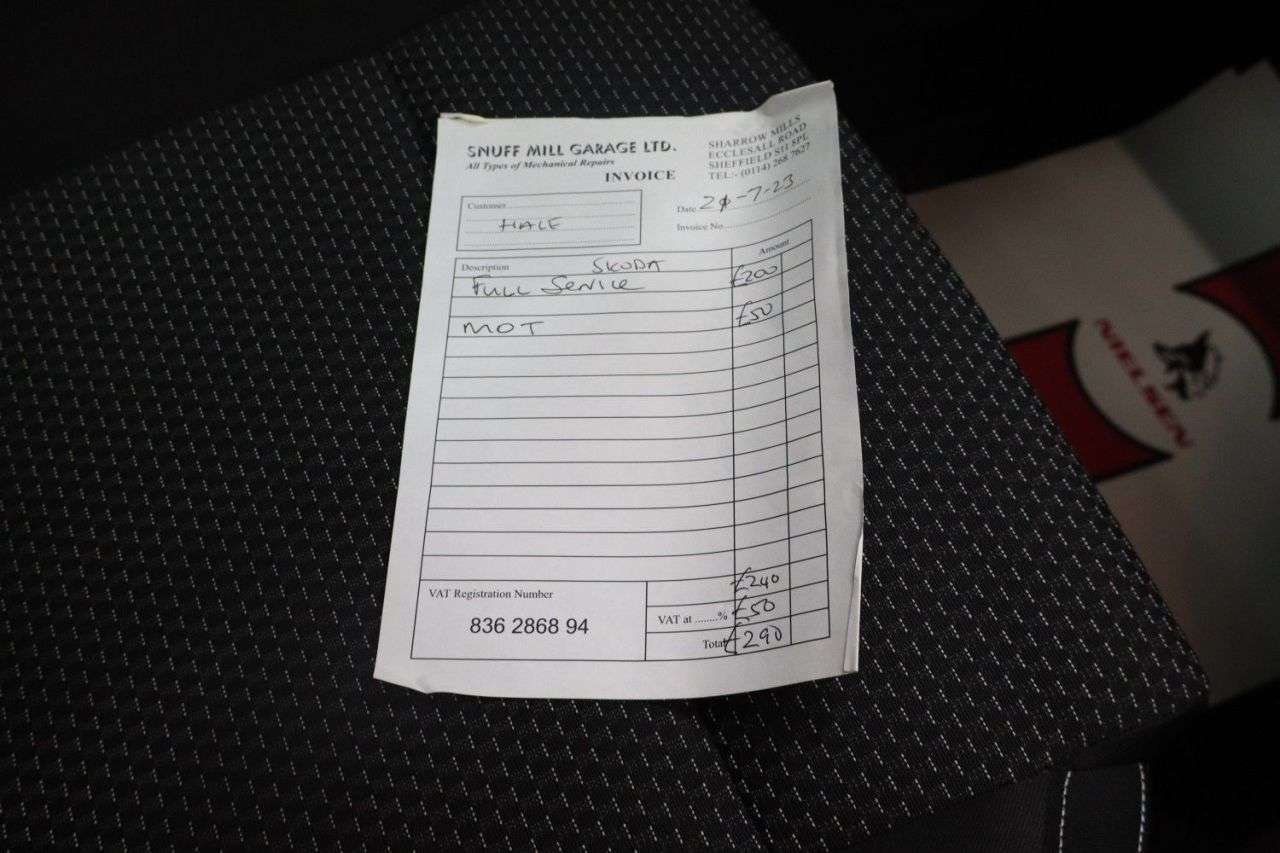 SNUFF MILL GARAGE LTD.
All Types of Mechanical Repairs
INVOICE
SHARROW MILLS
ECCLESALL ROAD
SHEFFIELD S11 8PL
TEL:- (0114) 268 7627
Customer
HALE
Date
-7-23
Invoice No.
Description SKODA Amount
FULL Service £200
MOT £50
£240
VAT Registration Number
836 2868 94
VAT at ........% £50
Total £290
NIELSEN